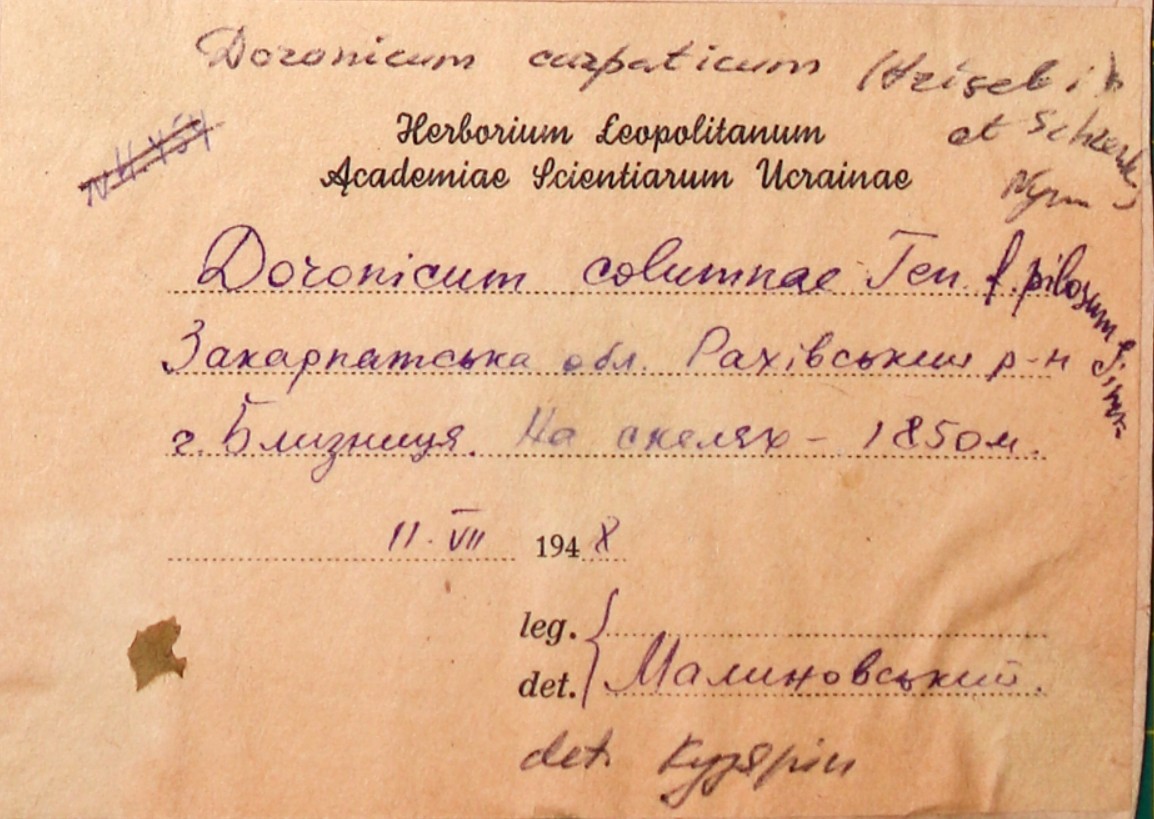 Doronicum carpaticum (Griseb.
et Schenk)
Nym
Herborium Leopolitanum
Academiae Scientiarum Ucrainae
Doronicum columnae Ten. f. pilosum
Закарпатська обл. Рахівський р-н
г. Близниця. На скелях – 1850м.
11. VII 1948
leg.
det. Малиновський.
det. Кузярін